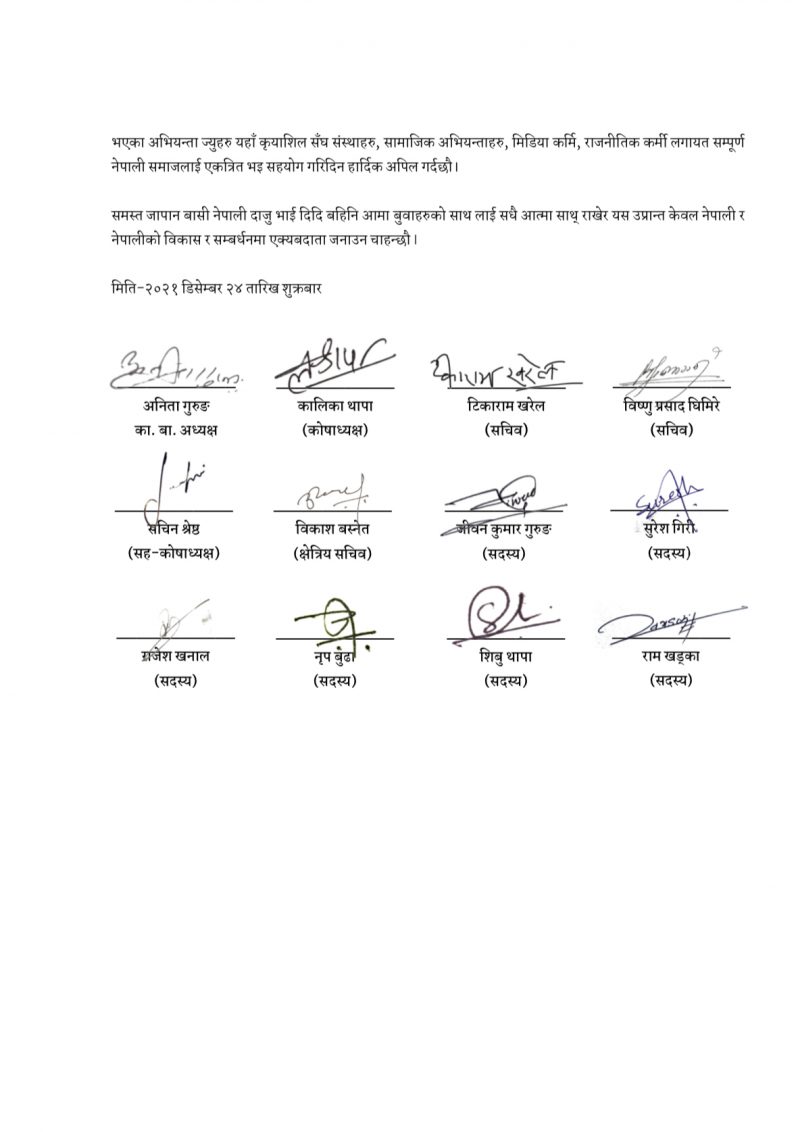 भएका अभियन्ता ज्युहरु यहाँ कृयाशिल सँघ संस्थाहरु, सामाजिक अभियन्ताहरु, मिडिया कर्मि, राजनीतिक कर्मी लगायत सम्पूर्ण
नेपाली समाजलाई एकत्रित भइ सहयोग गरिदिन हार्दिक अपिल गर्दछौ।
समस्त जापान बासी नेपाली दाजु भाई दिदि बहिनि आमा बुवाहरुको साथ लाई सधै आत्मा साथ् राखेर यस उप्रान्त केवल नेपाली र
नेपालीको विकास र सम्बर्धनमा एक्यबदाता जनाउन चाहन्छौ।
मिति-२०२१ डिसेम्बर २४ तारिख शुक्रबार
टिकाराम खरेल
अनिता गुरुङ कालिका थापा टिकाराम खरेल विष्णु प्रसाद घिमिरे
का. बा. अध्यक्ष (कोषाध्यक्ष) (सचिव) (सचिव)
Suresh
सचिन श्रेष्ठ विकाश बस्नेत जीवन कुमार गुरुङ सुरेश गिरी
(सह-कोषाध्यक्ष) (क्षेत्रिय सचिव) (सदस्य) (सदस्य)
राजेश खनाल नृप बुंढा शिबु थापा राम खड्का
(सदस्य) (सदस्य) (सदस्य) (सदस्य)